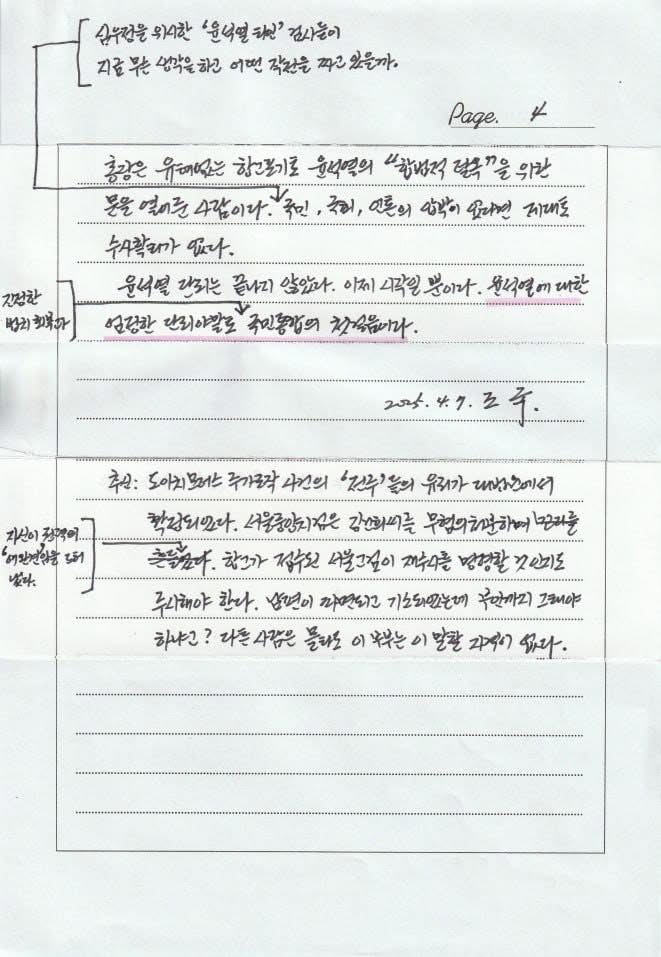 심우정을 위시한 '윤석열 라인' 검사들이
지금 무슨 생각을 하고 어떤 작전을 짜고 있을까.
Page. 4
총장은 유례없는 항고포기로 윤석열의 "합법적 탈옥"을 위한
문을 열어준 사람이다. 국민, 국회, 언론의 압박이 없다면 제대로
수사할리가 없다.
윤석열 단죄는 끝나지 않았다. 이제 시작일 뿐이다. 윤석열에 대한
진정한
법치 회복과
엄정한 단죄야말로 국민통합의 첫걸음이다.
2025. 4. 7. 조 국.
추신: 도이치모터스 주가조작 사건의 '전주'들의 유죄가 대법원에서
확정되었다. 서울중앙지검은 김건희씨를 무혐의처분하며 면죄를
자신이
'면죄권'을
났다. 항고가 접수된 서울고검이 재수사를 명령할 것인지도
주시해야 한다. 남편이 파면되고 기소되었는데 부인까지 그래야
하냐고? 다른 사람은 몰라도 이 부부는 이 말할 자격이 없다.